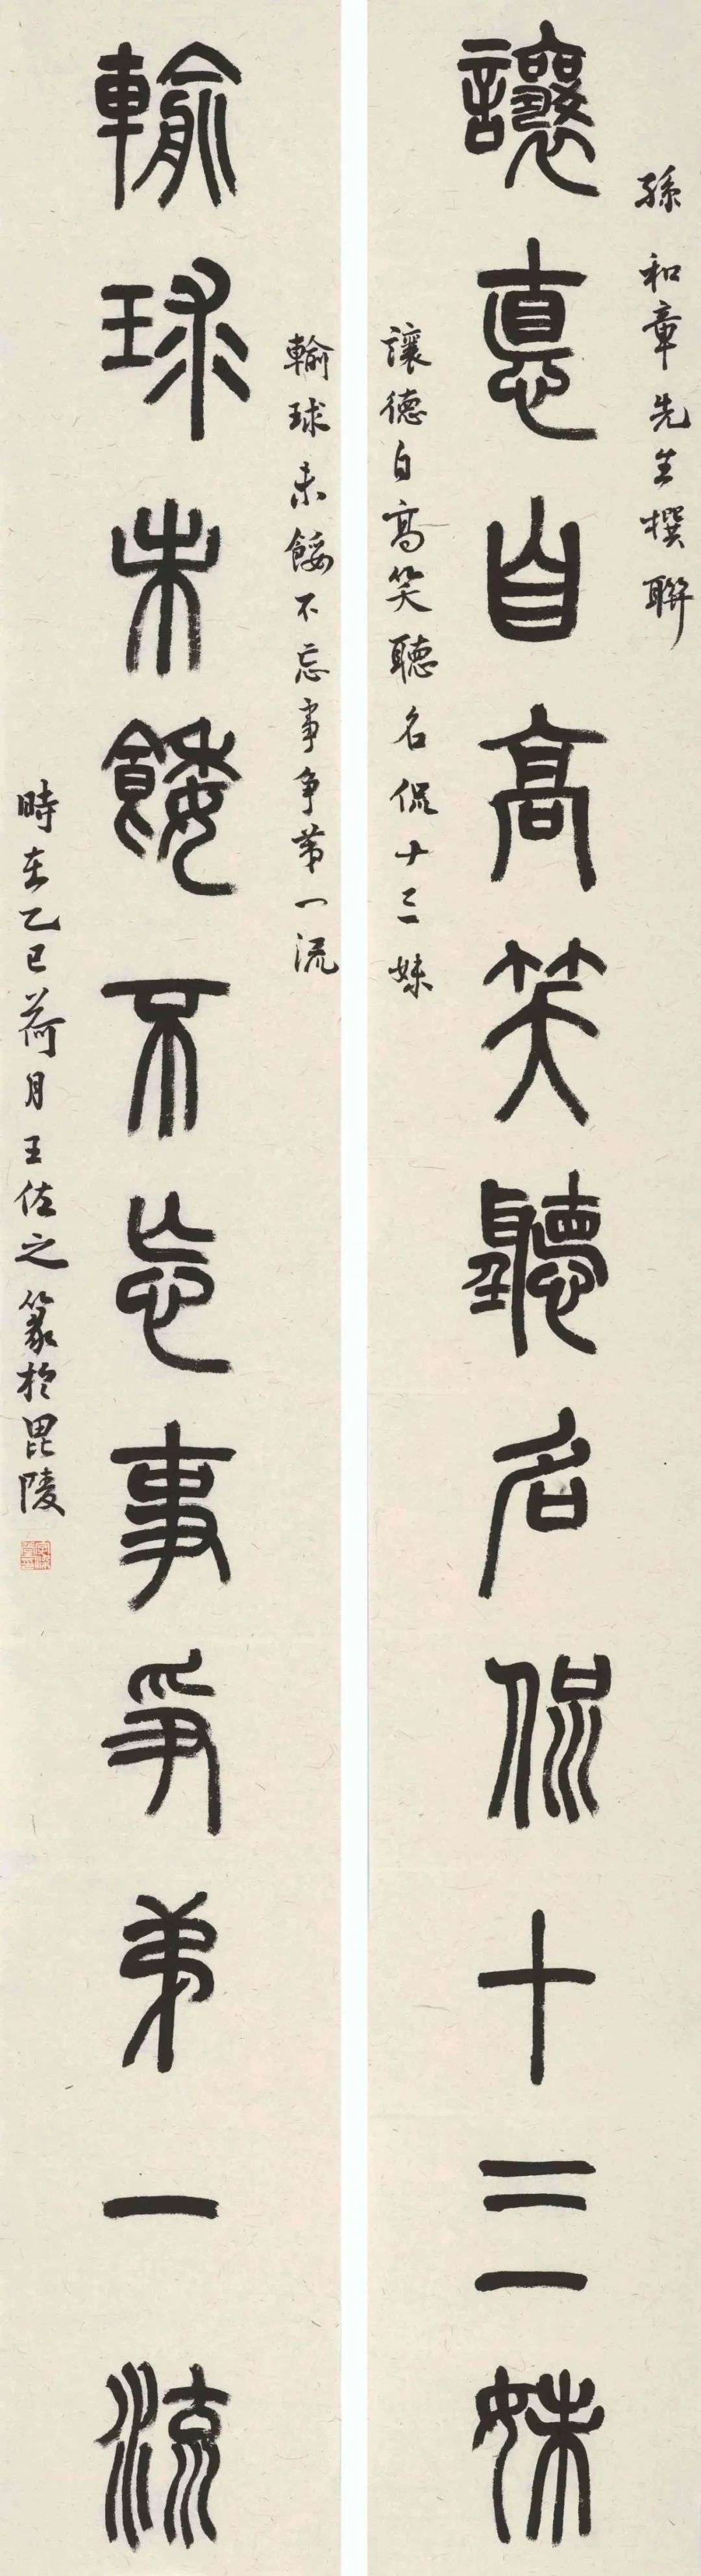 孫和章先生撰聯
讓悳自高笑聽名侃十三妹
讓德自高笑聽名侃十三妹
輸球未餒不忘事爭第一流
輸球未餒不忘事爭弟一流
時在乙巳荷月王佐之篆於毘陵